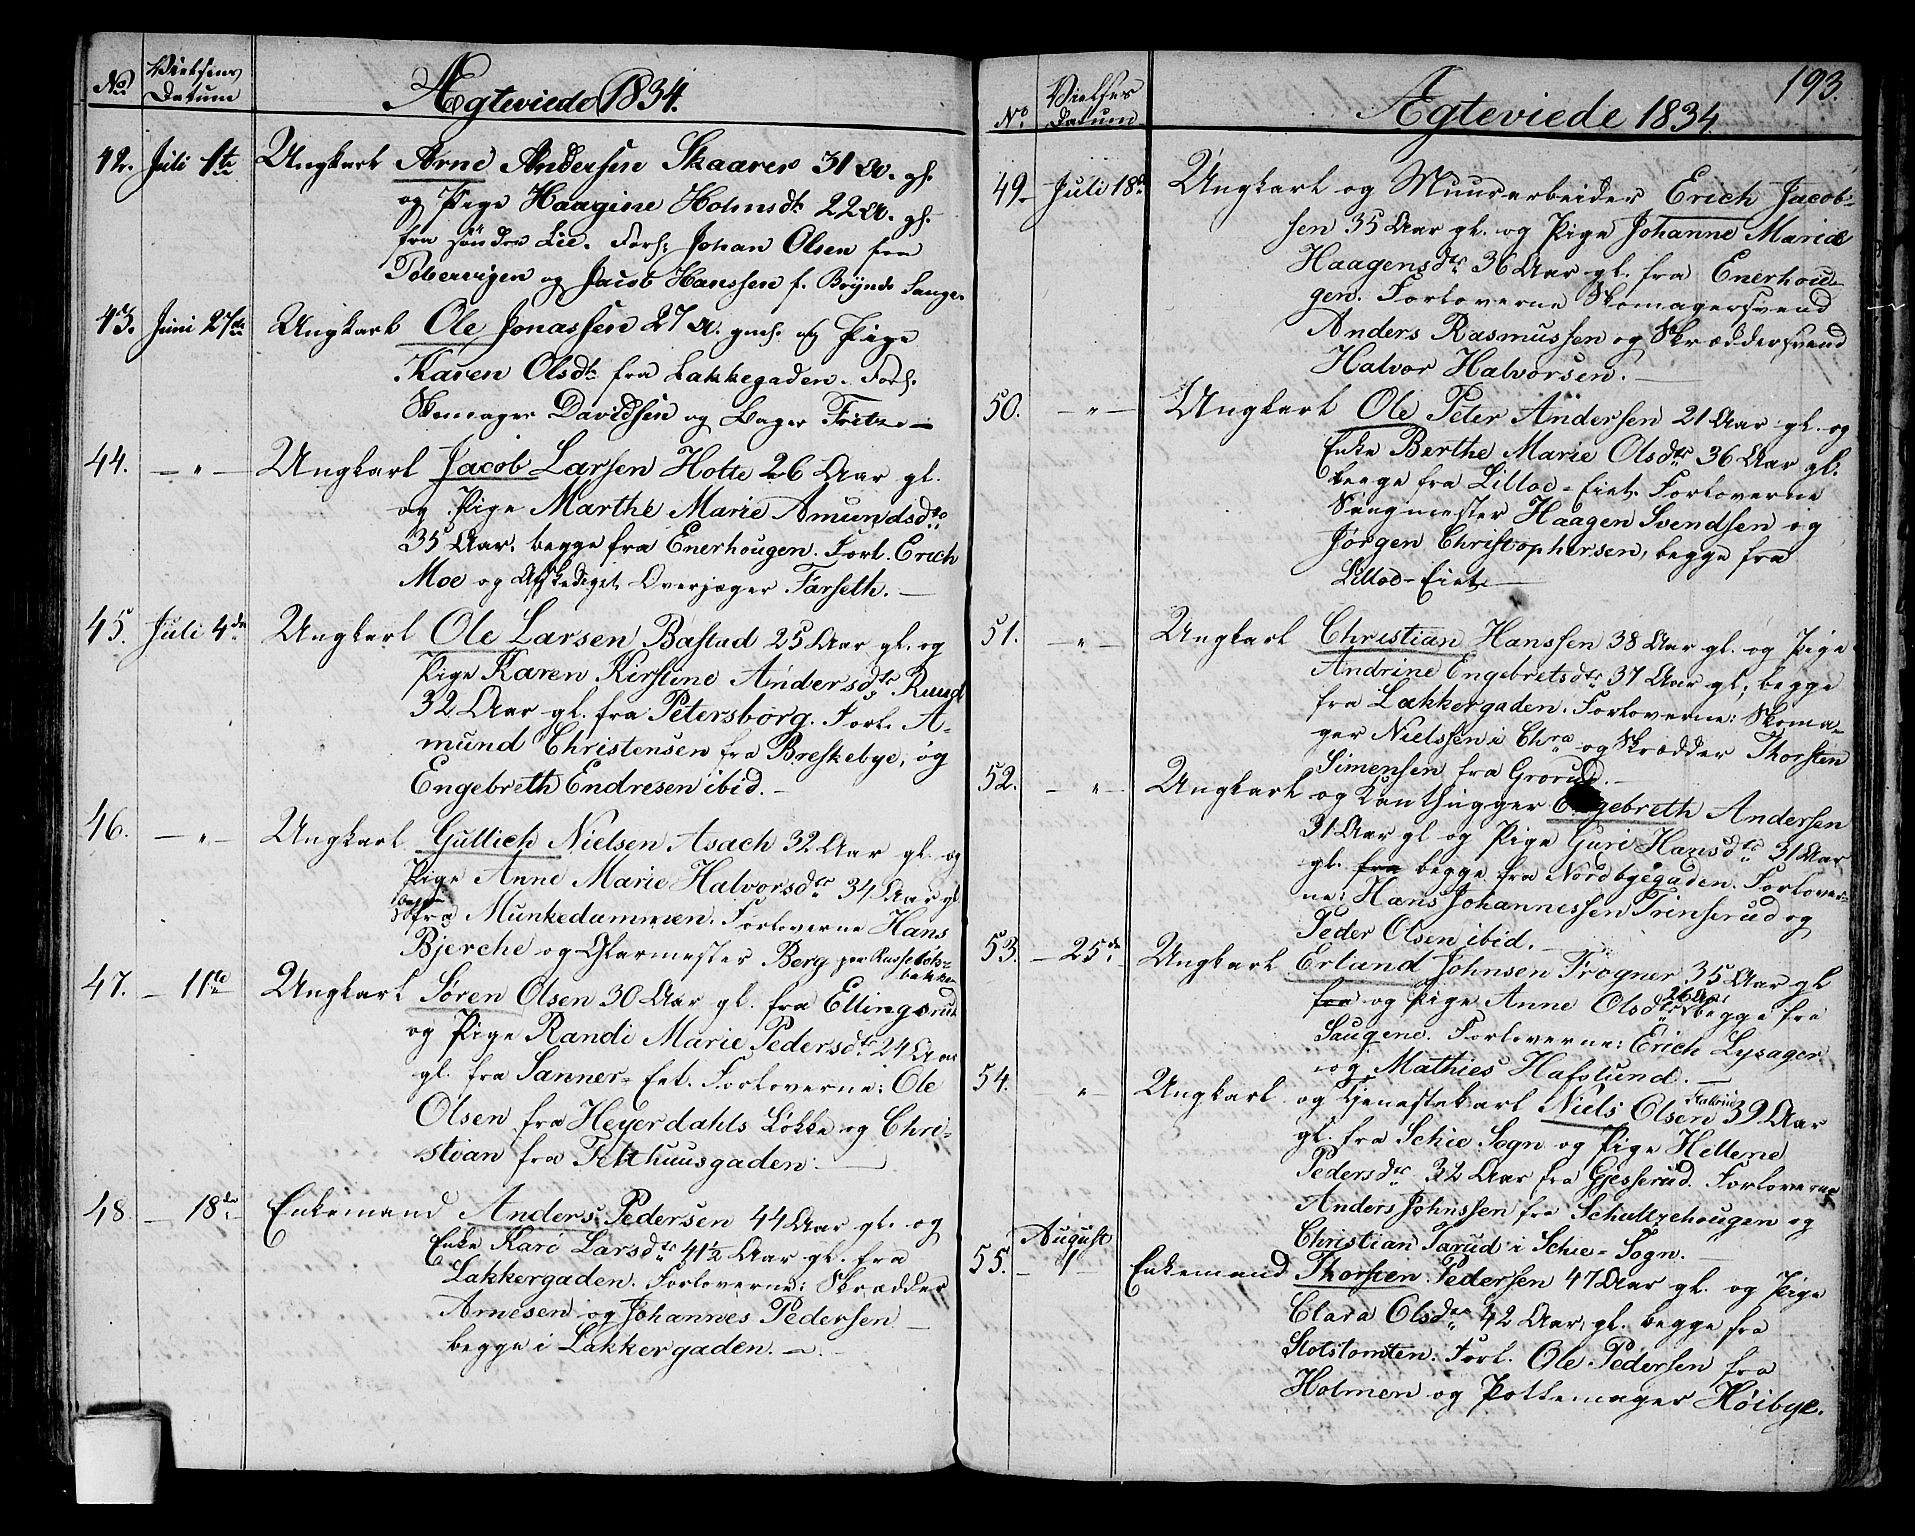 No. Vielsens Datum
Ægteviede 1834.
42. Juli 1te Ungkarl Arne Andersen Skaarer 31 A. gl.
og Pige Haagine Holmsdt. 22 A. gl.
fra søndre Lie. Forl: Johan Olsen fra
Pebervigen og Jacob Hanssen f. Brynds
43. Juni 27de Ungkarl Ole Jonassen 27 A. gml. og Pige
Karen Olsdt. fra Lakkegaden. Forl.
Skomager Davidsen og Bager Fritze –
44. – " – Ungkarl Jacob Larsen Holte 26 Aar gl.
og Pige Marthe Marie Amundsdtr
35 Aar. begge fra Enerhougen. Forl. Erich
Moe og Afskediget Overjæger Farseth. –
45. Juli 4de Ungkarl Ole Larsen Bastad 25 Aar gl. og
Pige Karen Kirstine Andersdtr Ruud
32 Aar gl. fra Petersborg. Forl. A-
mund Christensen fra Breskebye, og
Engebreth Endresen ibid. –
46. – " – Ungkarl Gullich Nielsen Asach 32 Aar gl. og
Pige Anne Marie Halvorsdtr 34 Aar gl
begge fra Munkedammen. Forloverne Hans
Bjerche og Glarmester Berg paa Russeløk-
bakken
47. – 11te Ungkarl Søren Olsen 30 Aar gl. fra Ellingsrud
og Pige Randi Marie Pedersdtr 24 Aar
gl. fra Sanner-Eiet. Forloverne: Ole
Olsen fra Heyerdahls Løkke og Chri-
stian fra Telthuusgaden. –
48. – 18de Enkemand Anders Pedersen 44 Aar gl. og
Enke Kari Larsdtr 41½ Aar gl. fra
Lakkergaden. Forloverne: Skrædder
Arnesen og Johannes Pedersen –
begge i Lakkergaden. –
193.
No. Vielses Datum
Ægteviede 1834.
49. Juli 18de Ungkarl og Muurarbeider Erich Jacob-
sen 35 Aar gl. og Pige Johanne Marie
Haagensdtr 36 Aar gl. fra Enerhou-
gen. Forloverne Skomagersvend
Anders Rasmussen og Skræddersvend
Halvor Halvorsen. –
50. – " – Ungkarl Ole Peter Andersen 21 Aar gl. og
Enke Berthe Marie Olsdtr 36 Aar gl.
begge fra Lilloe-Eiet. Forloverne
Saugmester Haagen Svendsen og
Jørgen Christophersen, begge fra
Lilloe-Eiet –
51. – " – Ungkarl Christian Hanssen 38 Aar gl. og Pige
Andrine Engebretsdtr 37 Aar gl; begge
fra Lakkergaden. Forloverne: Skoma-
ger Nielssen i Chra og Skrædder Thorsten
Simensen fra Grorud. –
52. – " – Ungkarl og Tømhugger Engebreth Andersen
31 Aar gl og Pige Guri Hansdtr 31 Aar
gl. fra begge fra Nordbygaden. Forlover-
ne: Hans Johannessen Trinserud og
Peder Olsen ibid. –
53. – 25de Ungkarl Erland Johnsen Frogner 35 Aar gl
fra og Pige Anne Olsdtr 26 Aar begge fra
Saugene. Forloverne: Erich Lysager
og Mathies Hafslund. –
54. – " – Ungkarl og Tjenestekarl Niels Olsen 39 Aar
gl. fra Schie Sogn og Pige Hellene
Pedersdtr 32 Aar fra Gjesserud. Forloverne
Anders Johnssen fra Schultzehougen og
Christian Tarud i Schie-Sogn.
55. – August 1 Enkemand Thorsten Pedersen 47 Aar gl. og Pige
Clara Olsdtr 42 Aar, gl. begge fra
Slotstomten. Forl. Ole Pedersen fra
Holmen og Pottemager Høibye.